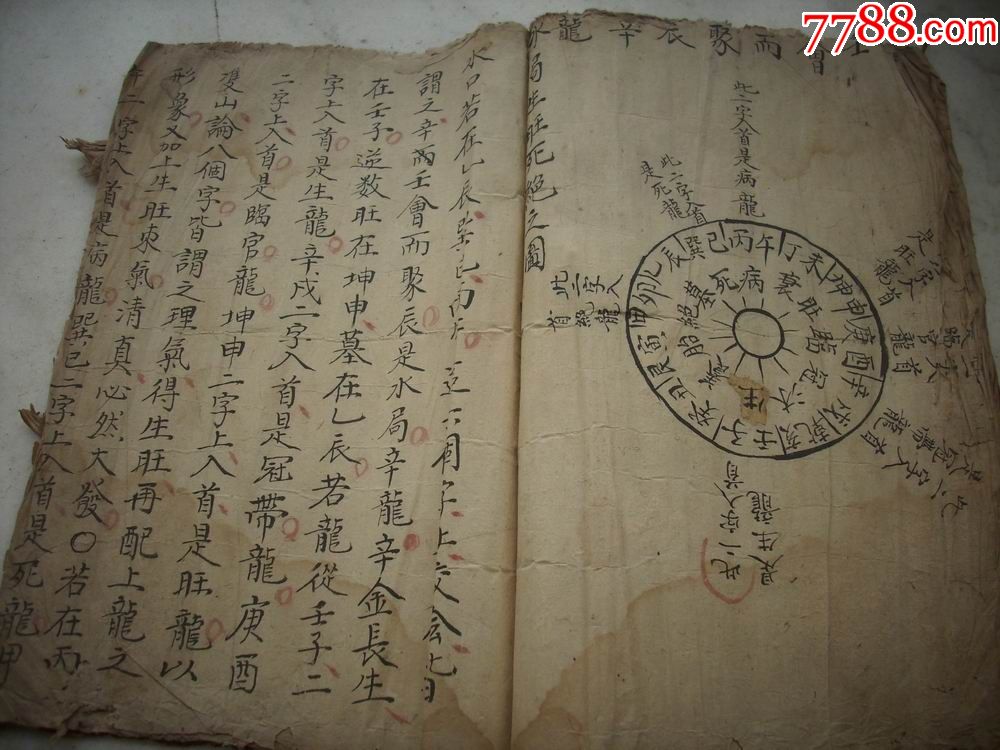 7788.com
會而聚辰辛龍
水局生旺死絕之圖
此二字入首是病龍
此二字入首
是死龍
此二字入
首絕龍
乙辰巽巳丙午丁未坤申庚酉辛戌乾亥壬子癸丑艮寅甲卯
墓死病衰旺臨冠沐生養胎絕
此二字入首
是生龍
水口若在乙辰巽巳丙午
謂之辛而壬會而聚辰是水局辛龍辛金長生
在壬子逆数旺在坤申墓在乙辰若龍從壬子二
字上入首是生龍辛戌二字入首是冠帶龍庚酉
二字上入首是臨官龍坤申二字上入首是旺龍以
雙山論八個字皆謂之理氣得生旺再配上龍之
形象又加上生旺束氣清真必然大發〇若在丙
午二字上入首是病龍巽巳二字上入首是死龍甲